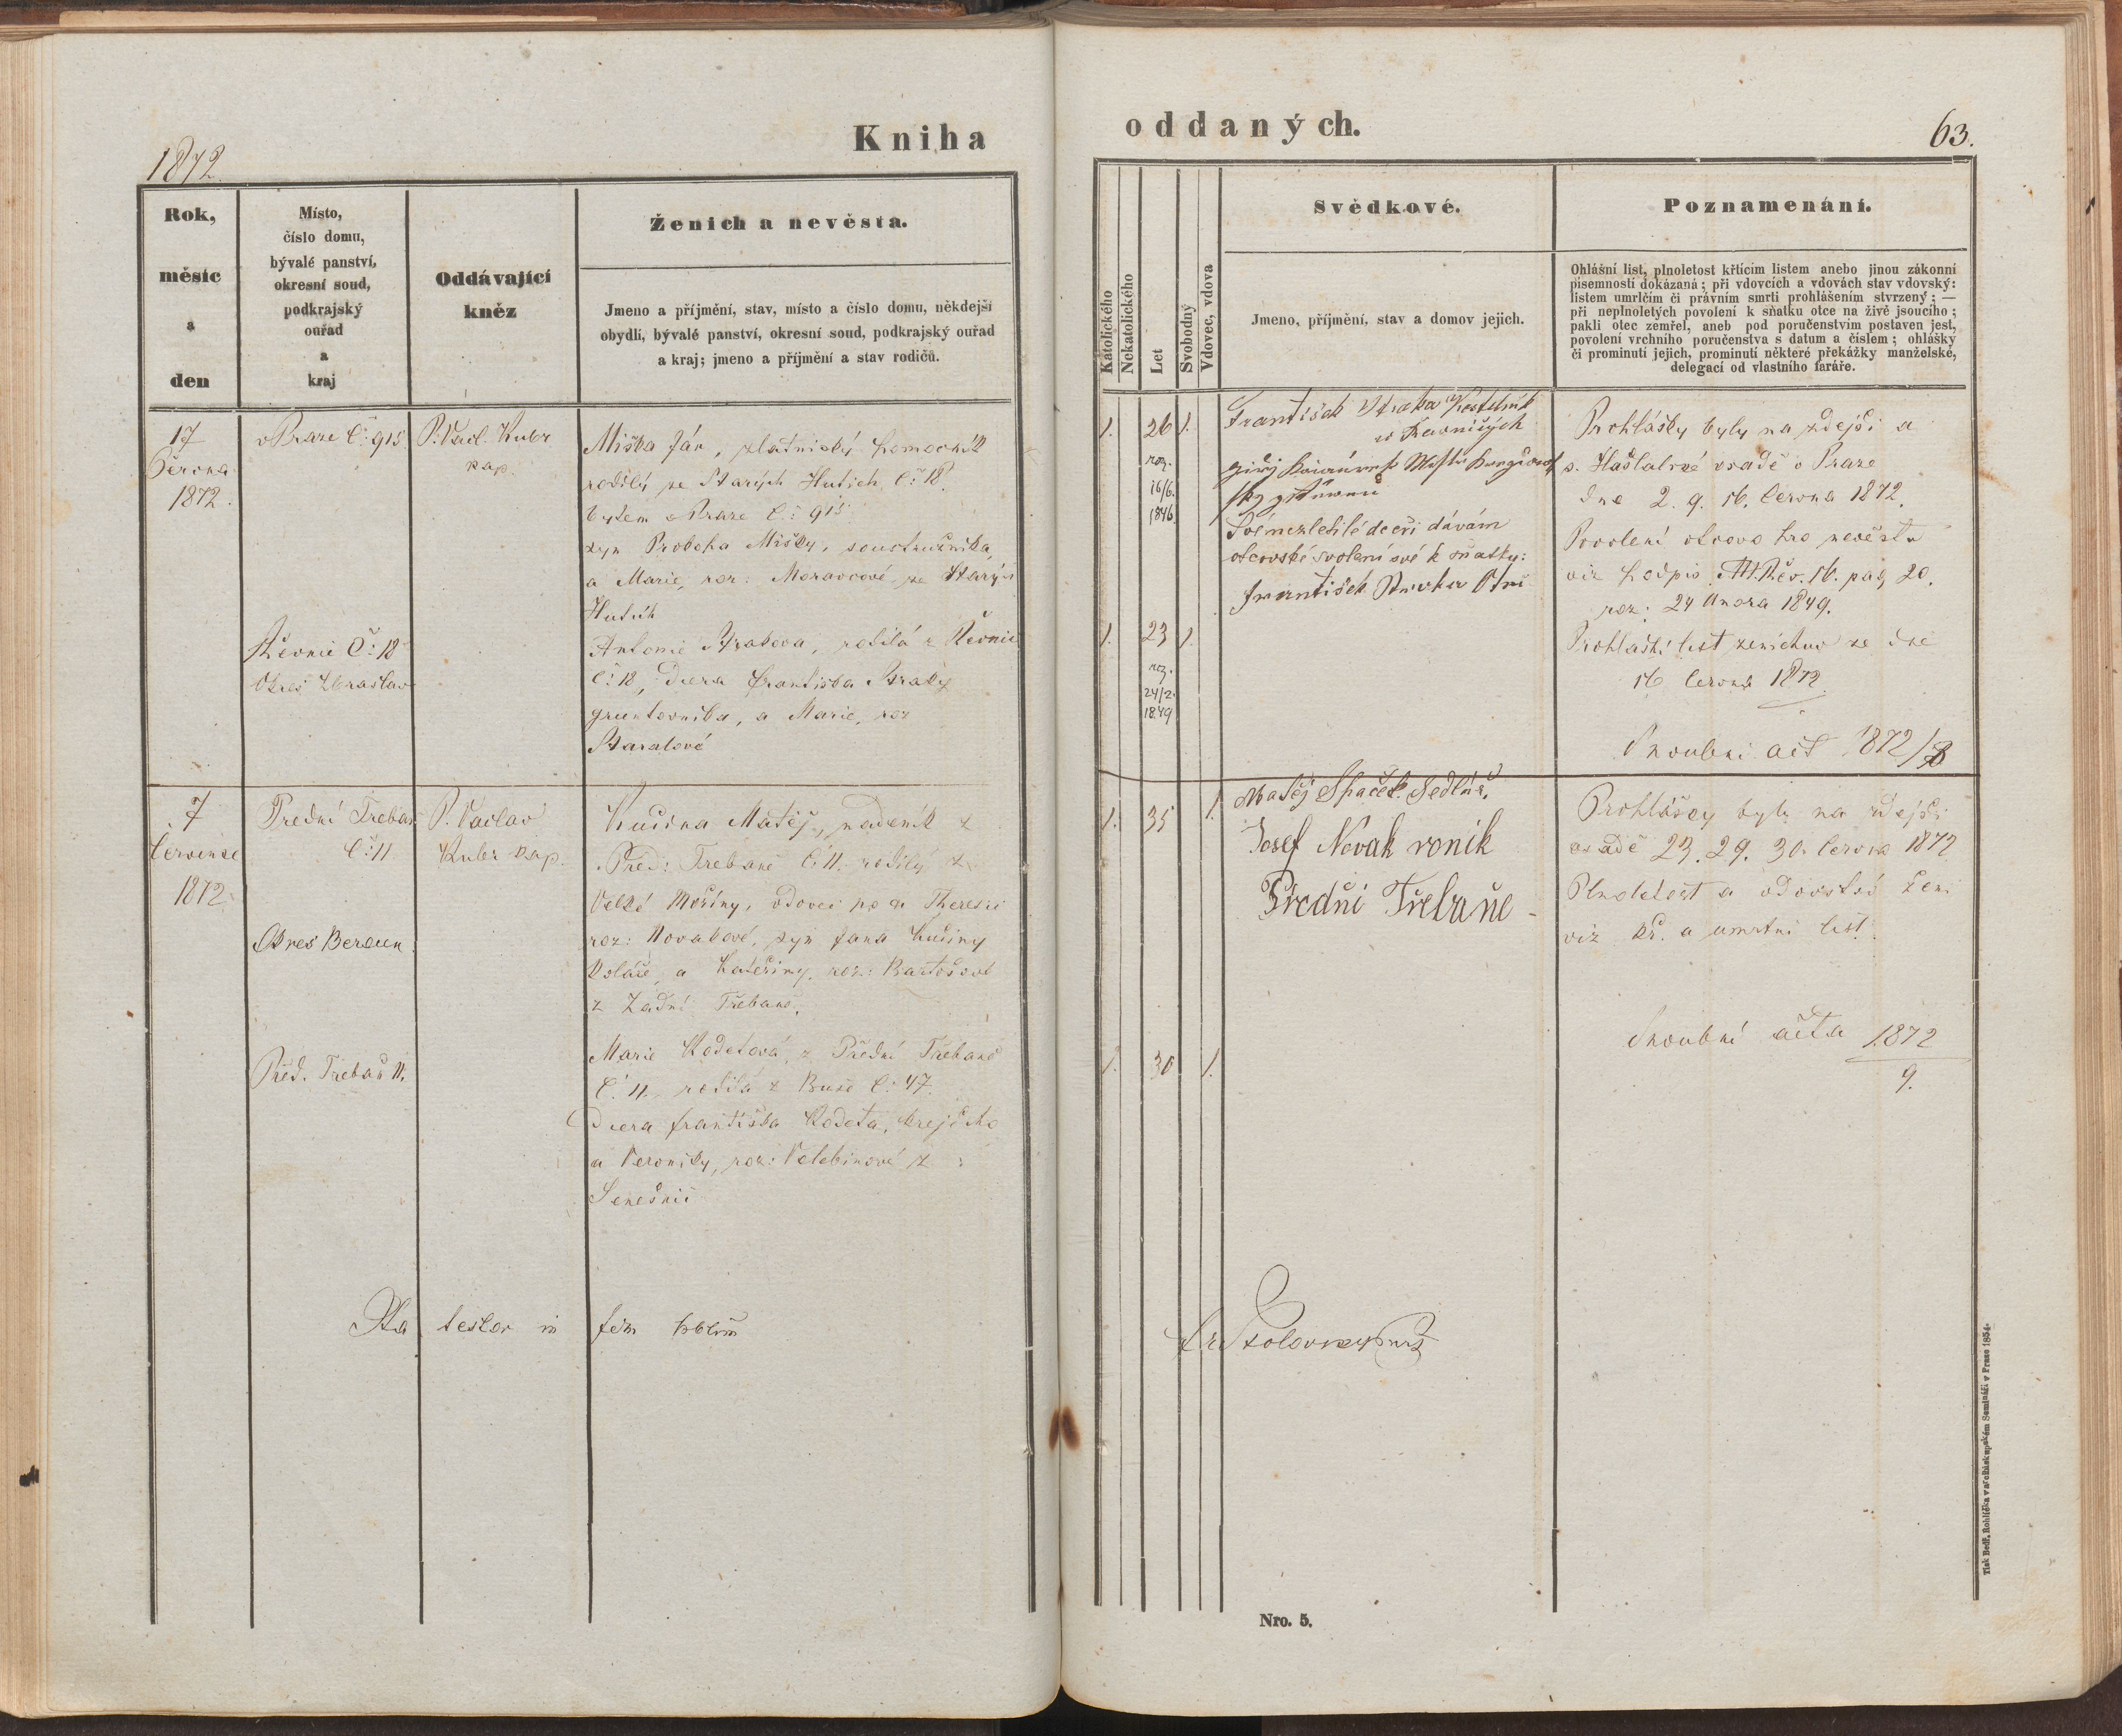 Kniha
oddaných.
1872
63.
Rok,
měsíc
a
den
Místo,
číslo domu,
bývalé panství,
okresní soud,
podkrajský
ouřad
a
kraj
Oddávající
kněz
Ženich a nevěsta.
Jmeno a příjmění, stav, místo a číslo domu, někdejší
obydlí, bývalé panství, okresní soud, podkrajský ouřad
a kraj; jmeno a příjmění a stav rodičů.
Katolického
Nekatolického
Let
Svobodný
Vdovec, vdova
Svědkové.
Jmeno, příjmění, stav a domov jejich.
Poznamenání.
Ohlášní list, plnoletost křticím listem anebo jinou zákonní
písemností dokázaná; při vdovcích a vdovách stav vdovský:
listem umrlčím či právním smrti prohlášením stvrzený; —
při neplnoletých povolení k sňatku otce na živě jsoucího;
pakli otec zemřel, aneb pod poručenstvím postaven jest,
povolení vrchního poručenstva s datum a číslem; ohlášky
či prominutí jejich, prominutí některé překážky manželské,
delegací od vlastního faráře.
17
Června
1872.
v Praze č: 915
P. Václ. Kubr
kap.
Miška Ján, zlatnický pomocník
rodilý ze Starých Hutích č: 18.
bytem v Praze č: 915
syn Prokopa Mišky, soustružníka,
a Marie, roz: Moravcové ze Starých
Hutích
Řevnic č: 18
Okres Zbraslav
Antonie Strakova, rodilá z Řevnic
č: 18, dcera Františka Straky
gruntovníka, a Marie, roz
1.
26
1.
roz.
16/6.
1846
František Straka
v Řevnicých
Své nezletilé dceři dávám
otcovské svolení své k sňatku:
František Straka Otec
1.
23
1.
roz.
24/2.
1849
Prohlášky byly na zdejší a
s. Haštalské osadě v Praze
dne 2. 9. 16. června 1872.
Povolení otcovo pro nevěstu
viz podpis. Řev. 16. pag 20.
roz: 24 února 1849.
Prohlašší list ženichuv ze dne
16 června 1872.
Snoubní act 1872/8
7
července
1872
Přední Třebaň
č: 11
Okres Beroun
Před. Třebaň 11.
P. Václav
Kubr kap.
Kučina Matěj, nadeník z
Před: Třebaně č: 11. rodilý z
Velké Mořiny, vdovec po a Theresii
roz: Novakové, syn Jana Kučiny
koláře, a Kateřiny, roz: Bartošové
z Zadní Třebaně.
Marie Kodetová, z Přední Třebaně
č. 11, rodilá z Buše č: 47.
dcera Františka Kodeta, krejčího
a Veroniky, roz:
1.
35
1.
1.
30
1.
Matěj Spaček Sedlák
Josef Novak ronik
Přední Třebaňe -
Prohlášky byly na zdejší
osadě 23. 29. 30. června 1872
Plnoletost a vdovství ženi
viz kř. a umrtní list.
Snoubní acta 1872
9.
Ita testor in fidem
Nro. 5.
Tisk Bedř. Rohlíčka v arcibiskupském Semináři v Praze 1854.